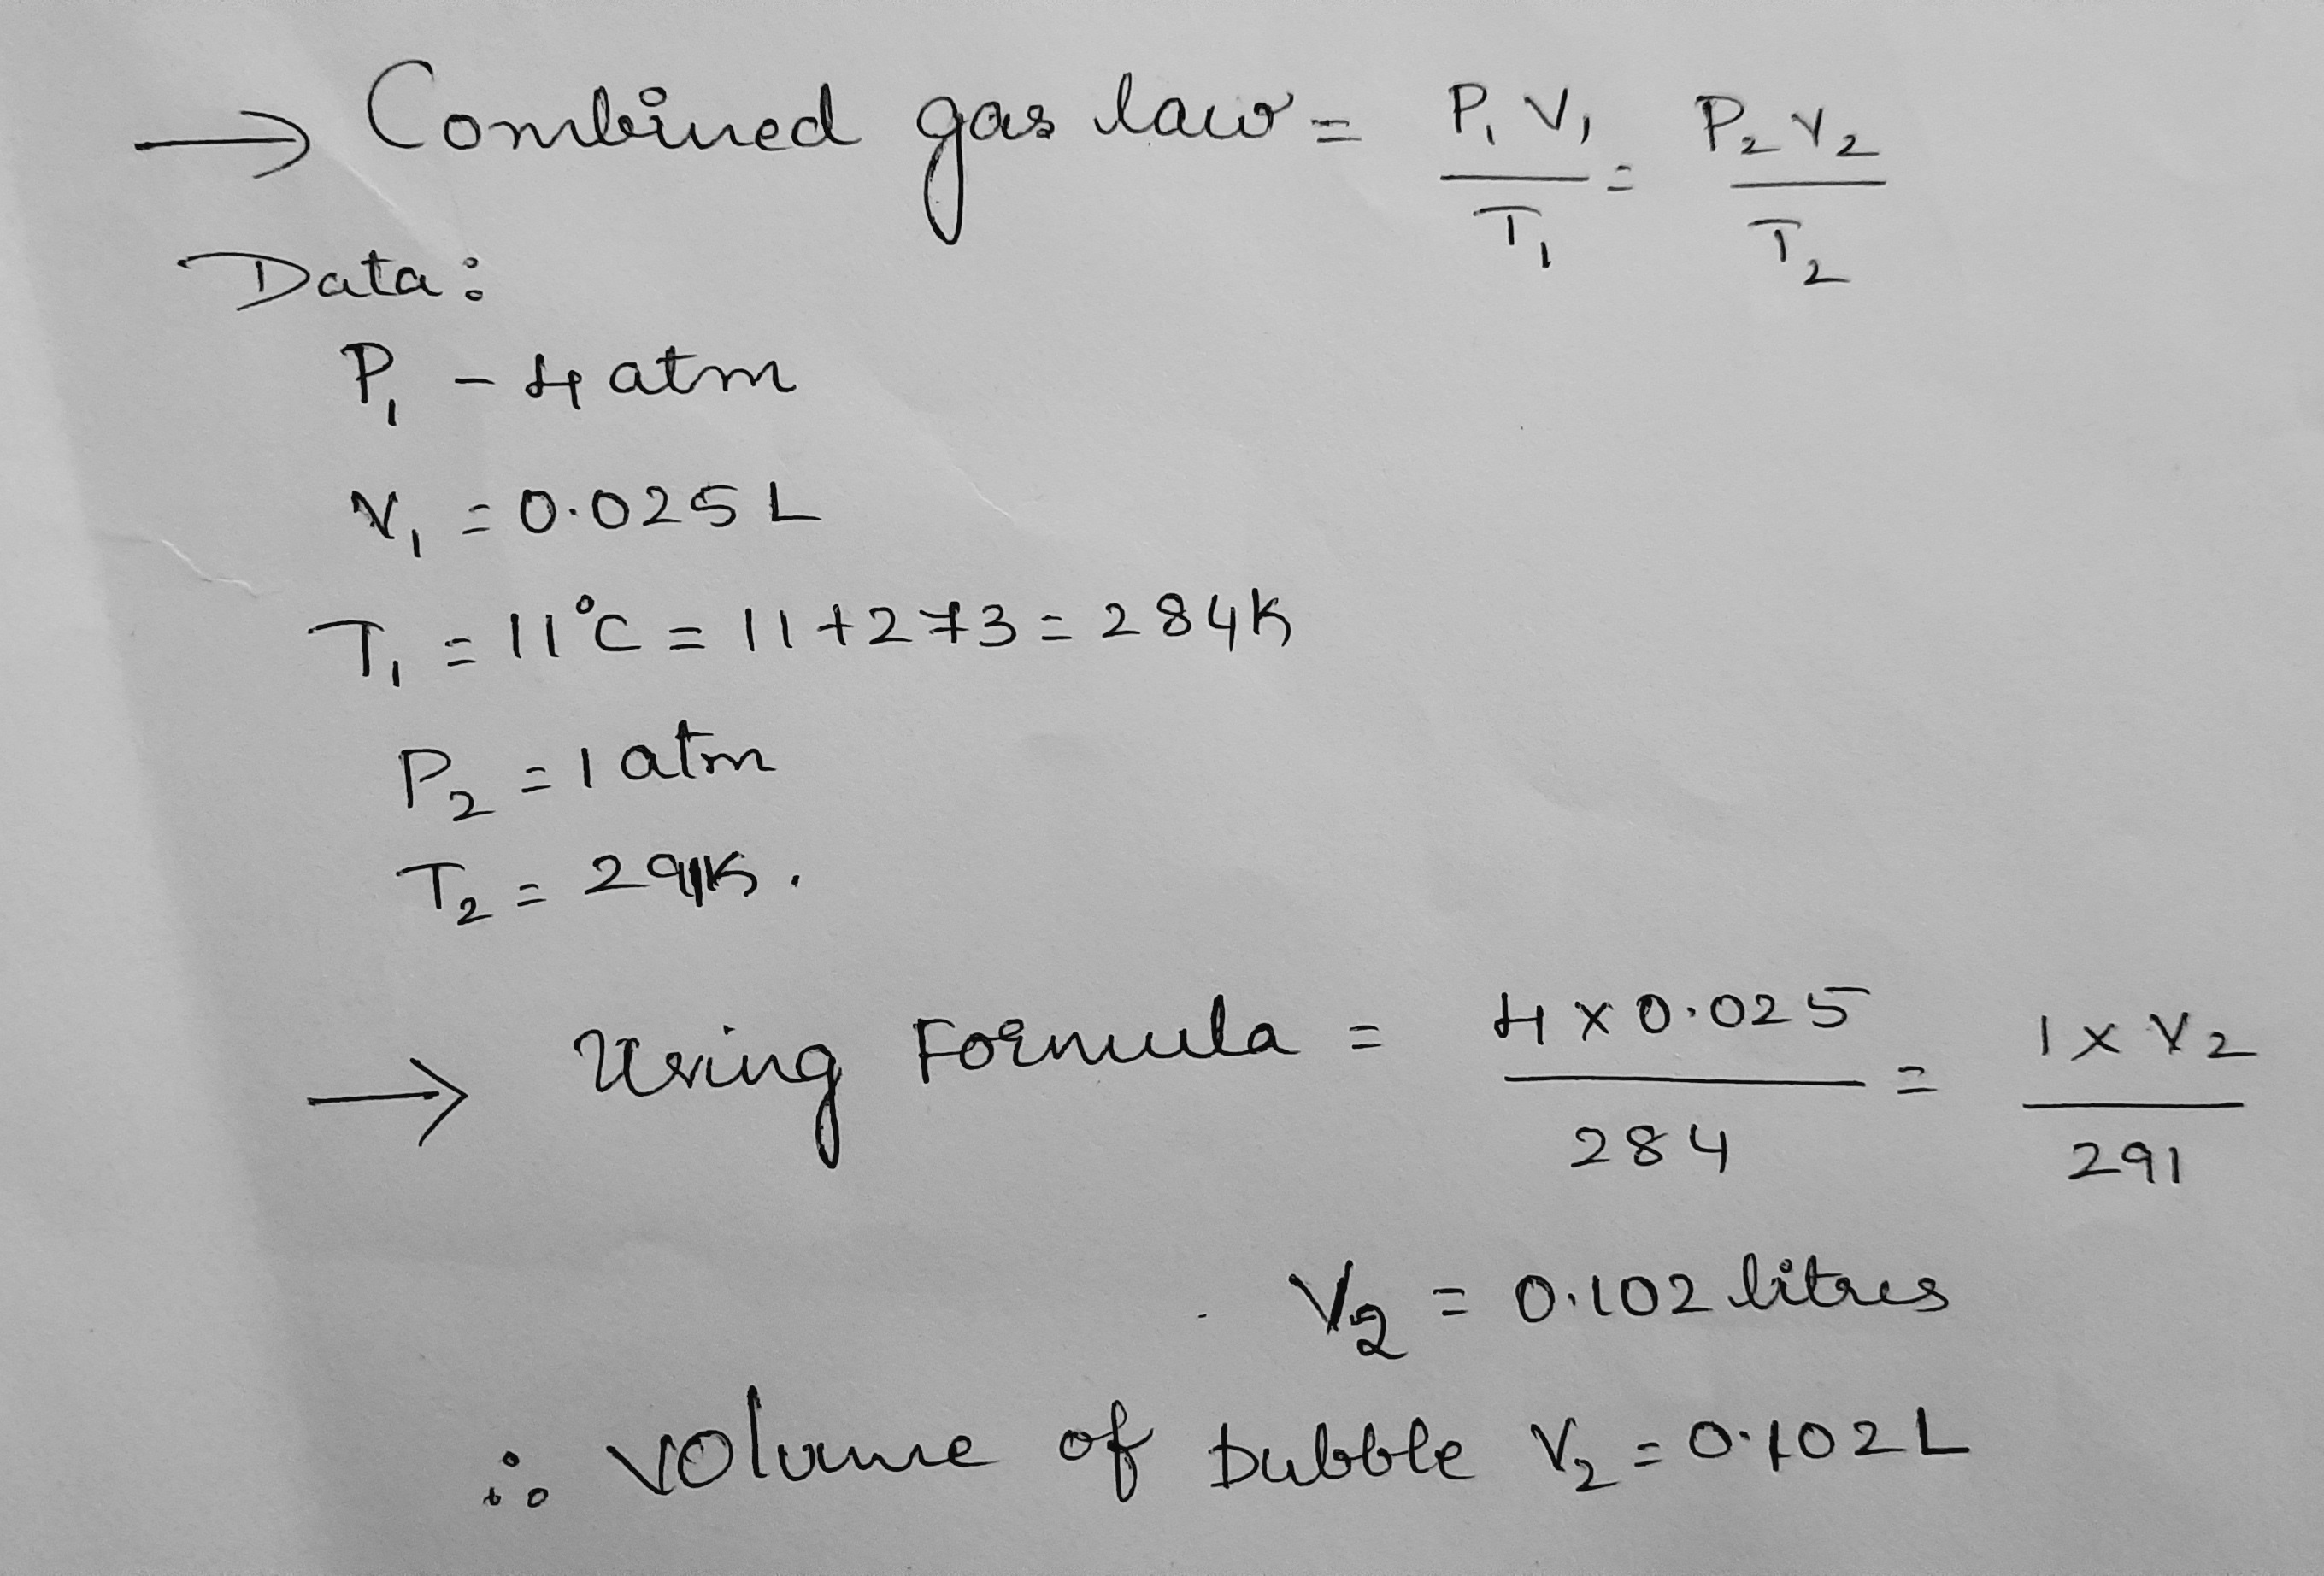 → Combined gas law = P₁V₁/T₁ = P₂V₂/T₂
Data:
P₁ - 4 atm
V₁ = 0.025 L
T₁ = 11°C = 11+273 = 284K
P₂ = 1 atm
T₂ = 291K.
→ Using Formula = 4×0.025/284 = 1×V₂/291
V₂ = 0.102 litres
∴ volume of bubble V₂ = 0.102 L